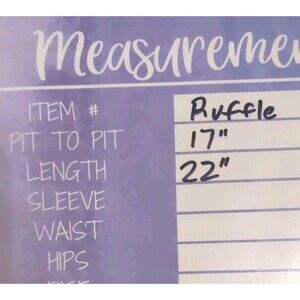 Measureme
ITEM # Ruffle
PIT TO PIT 17"
LENGTH 22"
SLEEVE
WAIST
HIPS
RISE